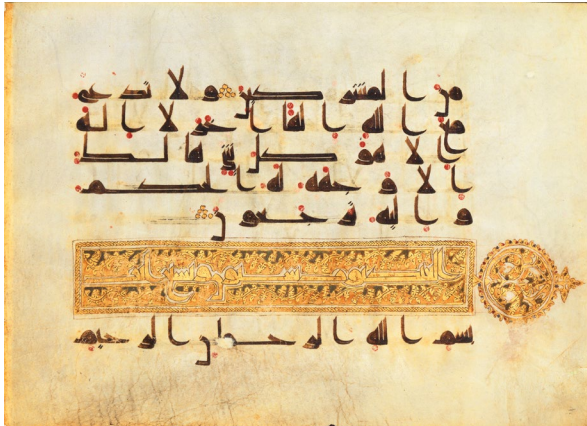 من المشركين ولا تدع
مع الله الها اخر لا اله
الا هو كل شي هالك
الا وجهه له الحكم
واليه ترجعون
ستون وتسع
بسم الله الرحمن الرحيم